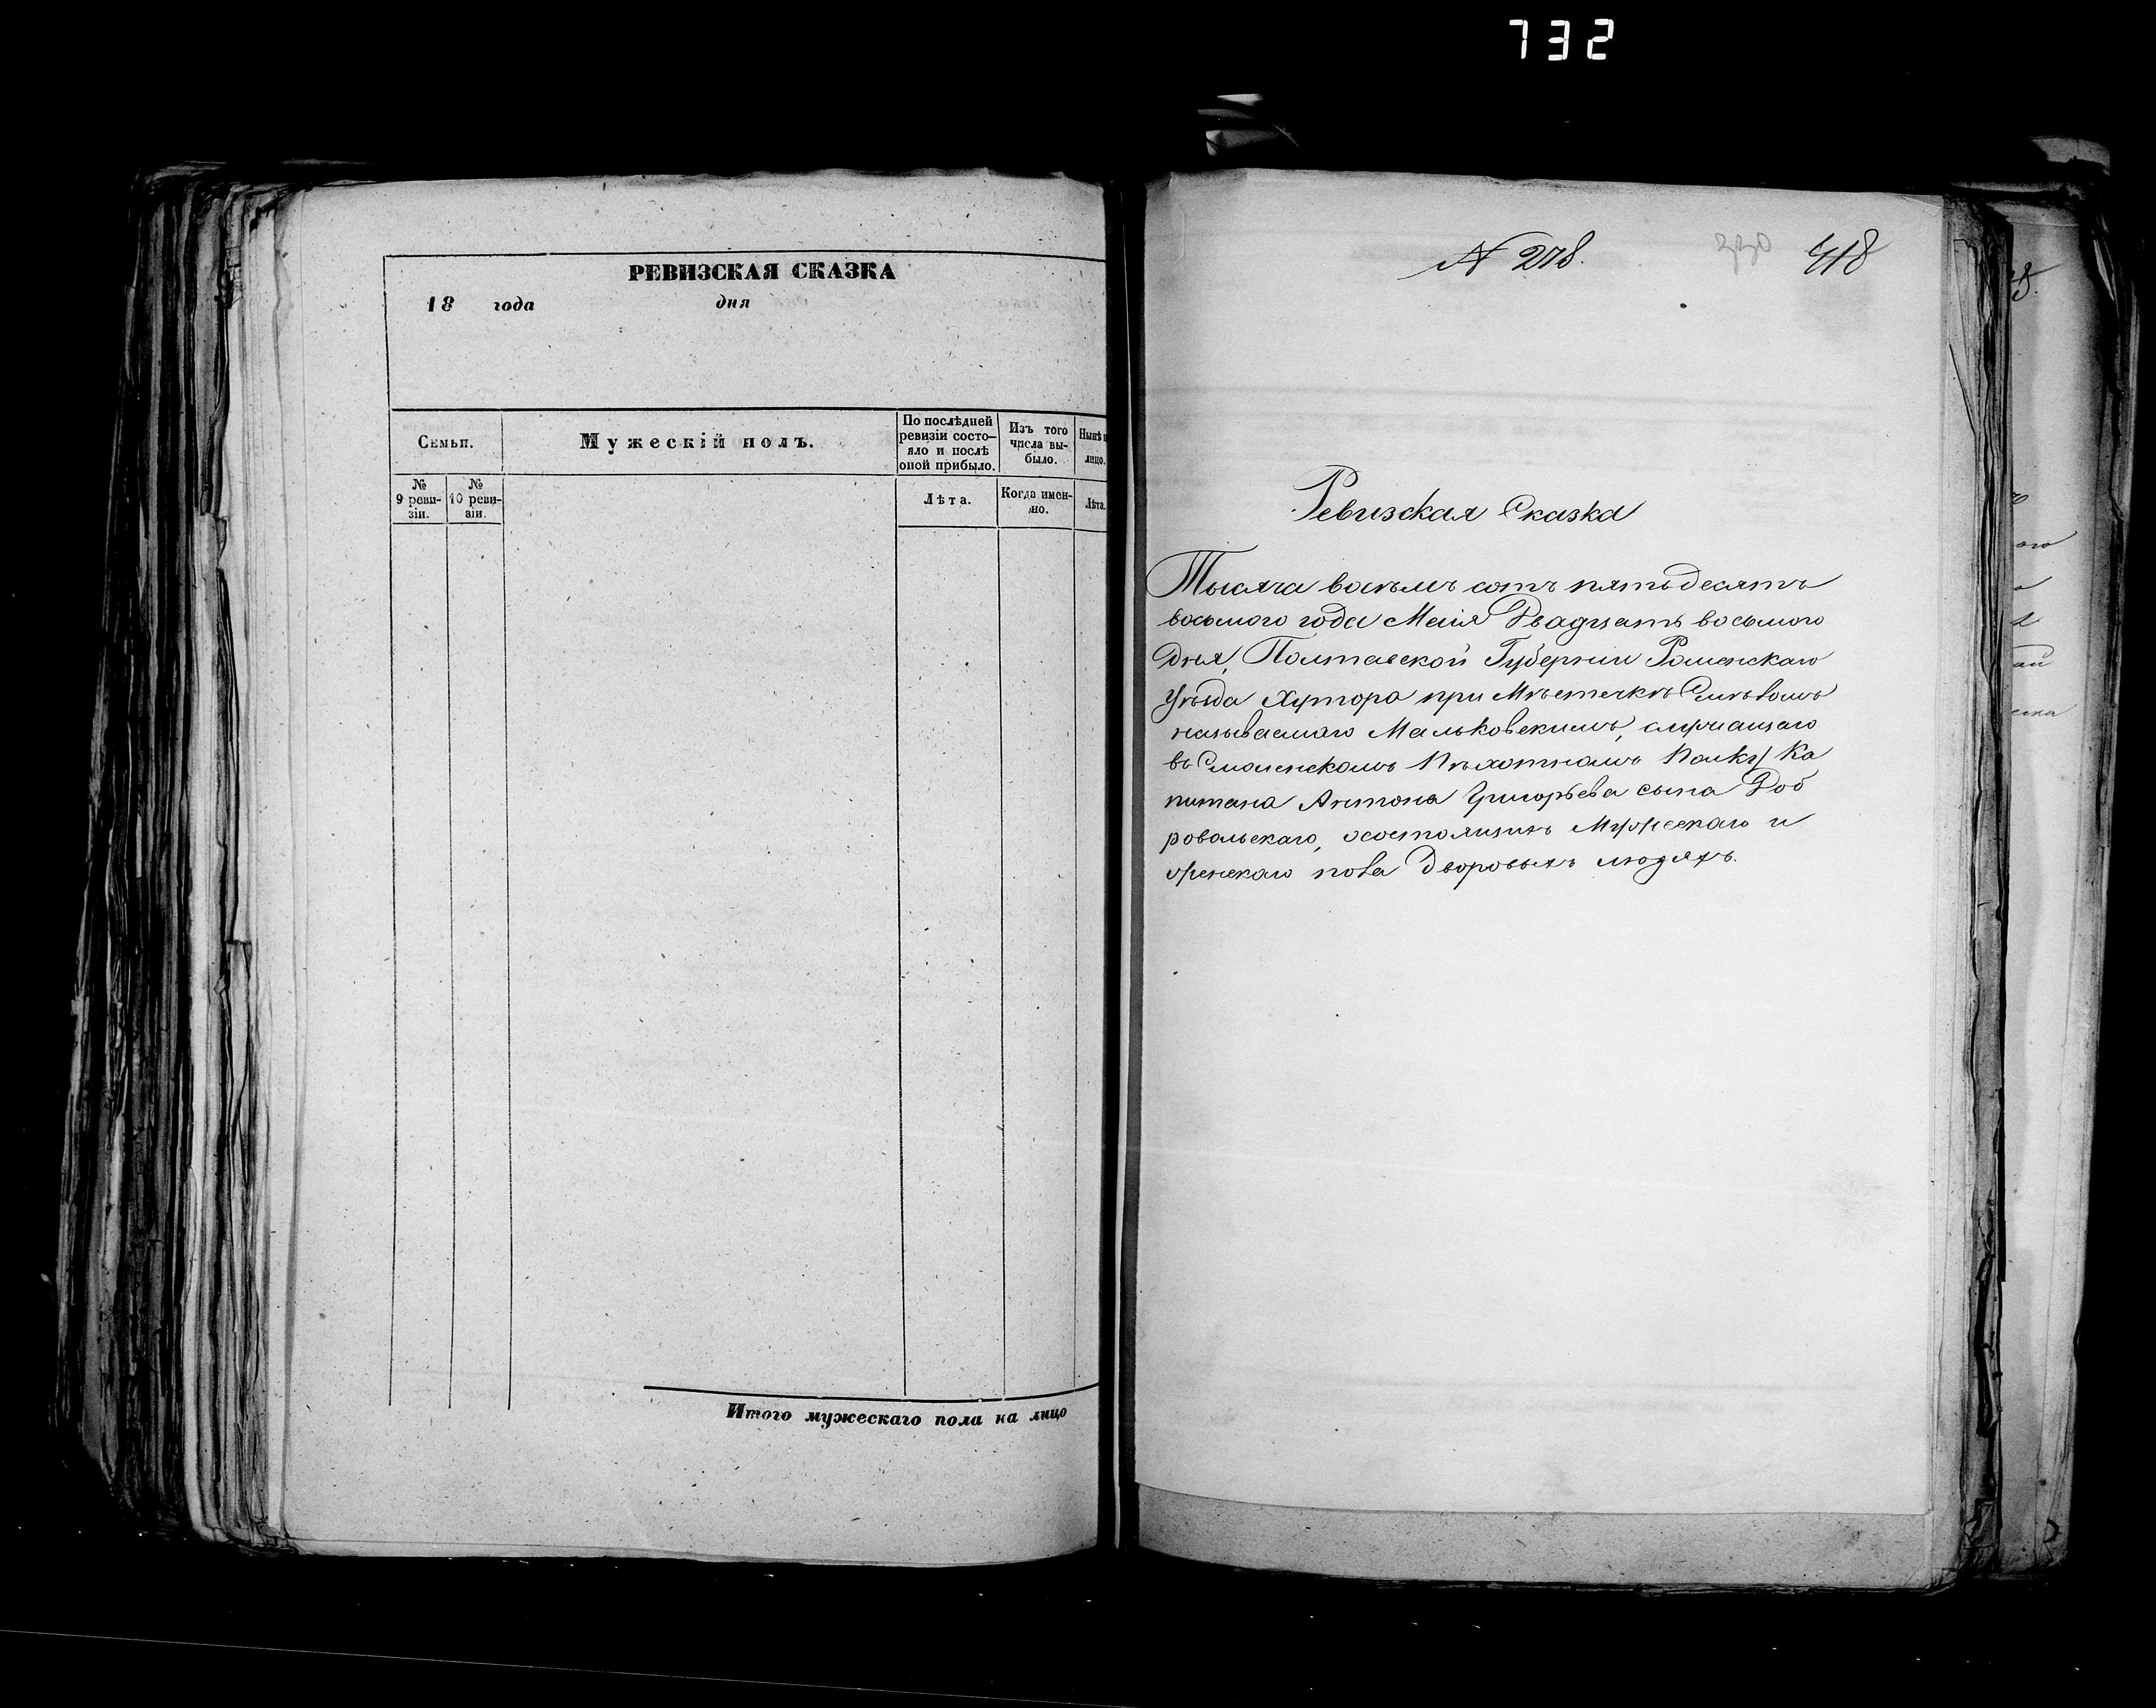 732
РЕВИЗСКАЯ СКАЗКА
18 года дня
Семьи.
Мужескій полъ.
По послѣдней
ревизіи состо-
яло и послѣ
оной прибыло.
Изъ того
числа вы-
было.
Нынѣ
лицо.
№
9 реви-
зіи.
№
10 реви-
зіи.
Лѣта.
Когда имен-
но.
Лѣта.
Итого мужескаго пола на лицо
№ 278. 418
Ревизская Сказка
Тысяча восемь сотъ пятьдесятъ
восьмого года Маія Двадцать восьмого
дня, Полтавской Губерніи Роменскаго
уѣзда Хутора при Мѣстечкѣ Смѣломъ
называемаго Мальковскимъ, служащаго
въ Смоленскомъ Пѣхотномъ Полку Ка
питана Антона Григорьева сына Доб
ровольскаго, осостоящихъ Мужескаго и
женскаго пола Дворовыхъ людяхъ.